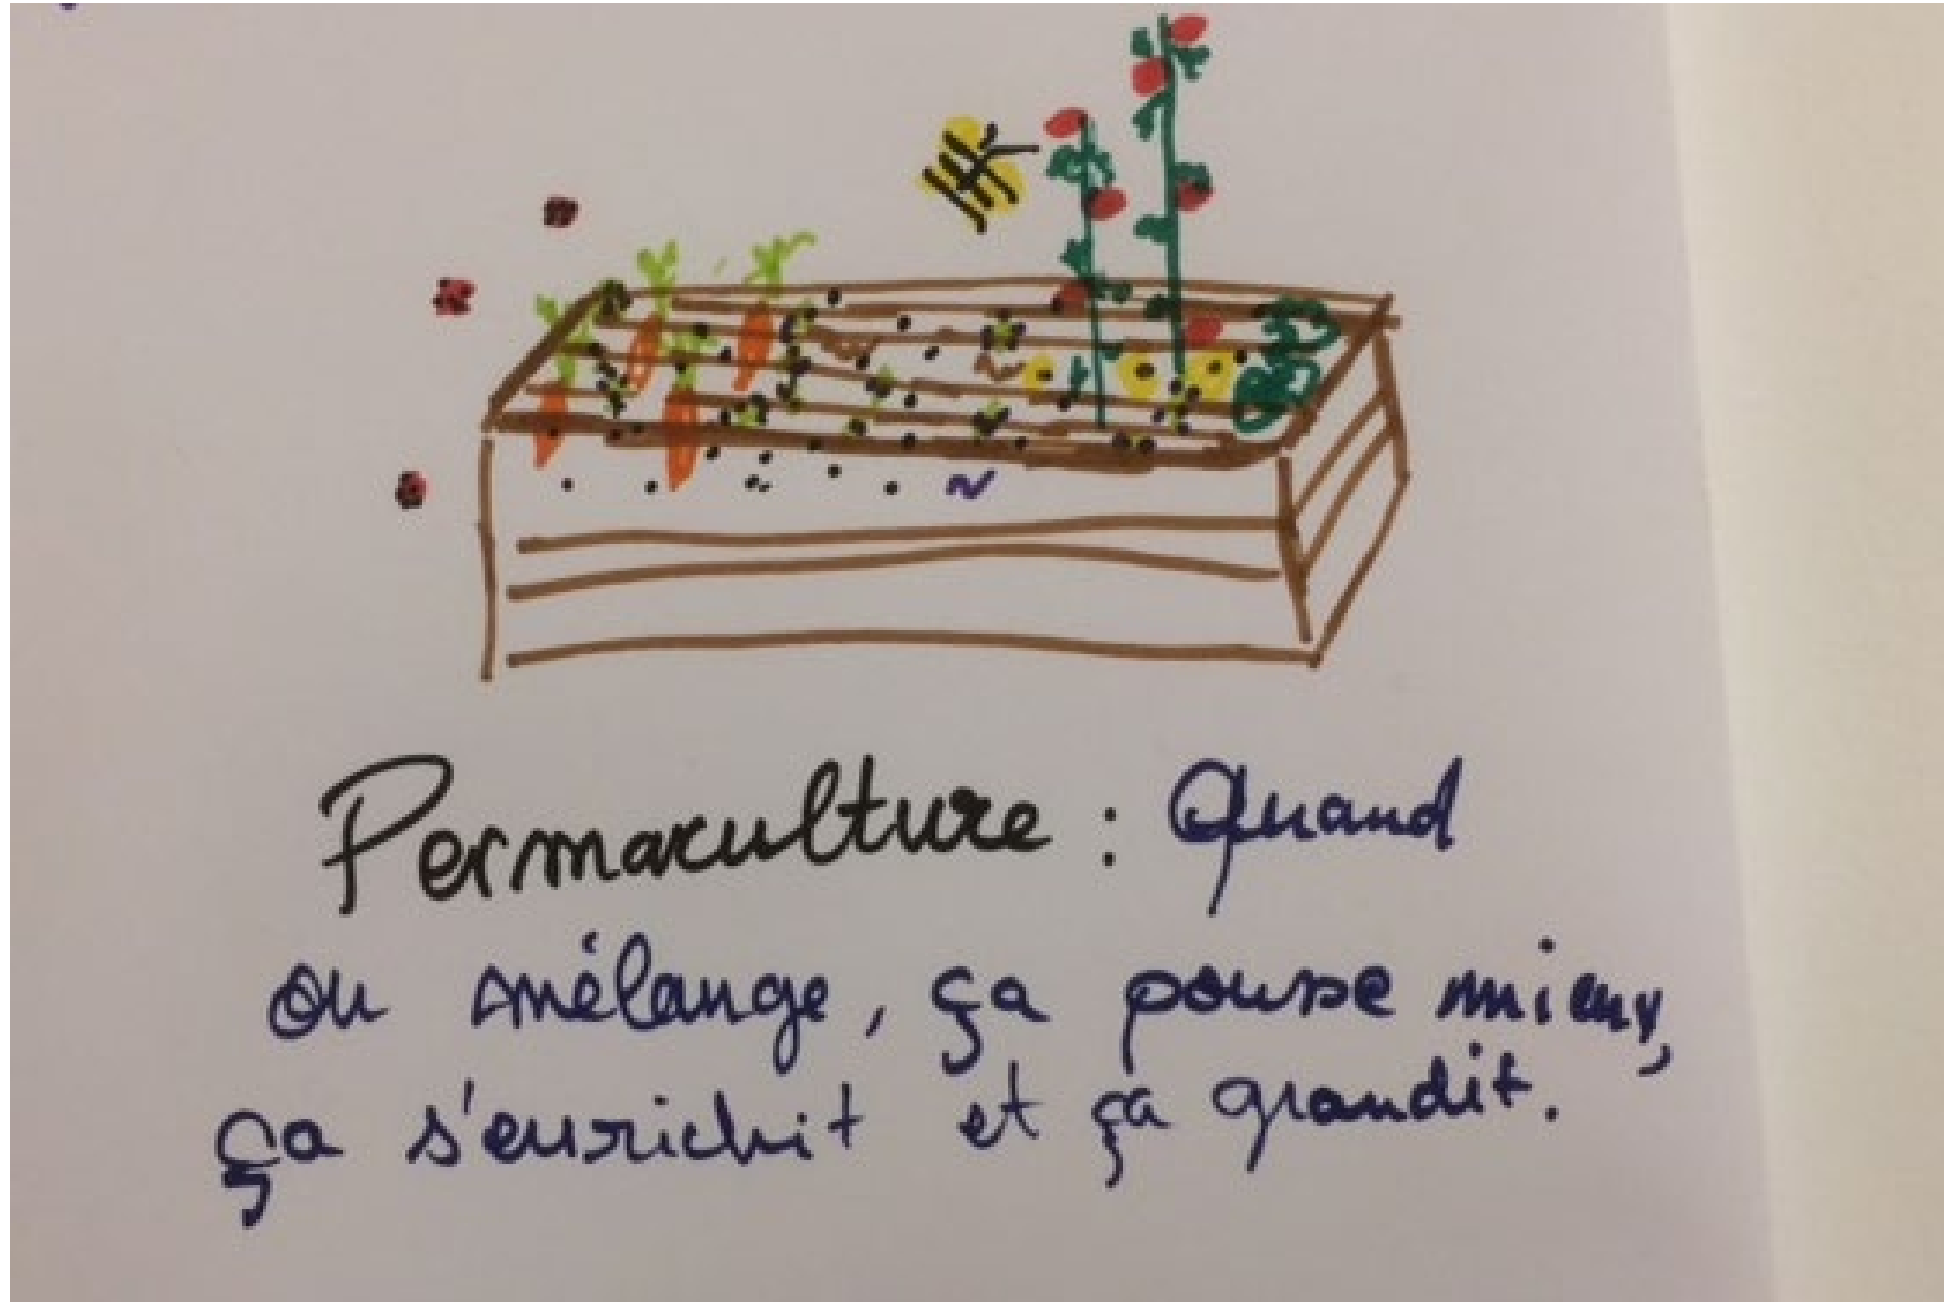 Permaculture : Quand
on mélange, ça pousse mieux,
ça s'enrichit et ça grandit.